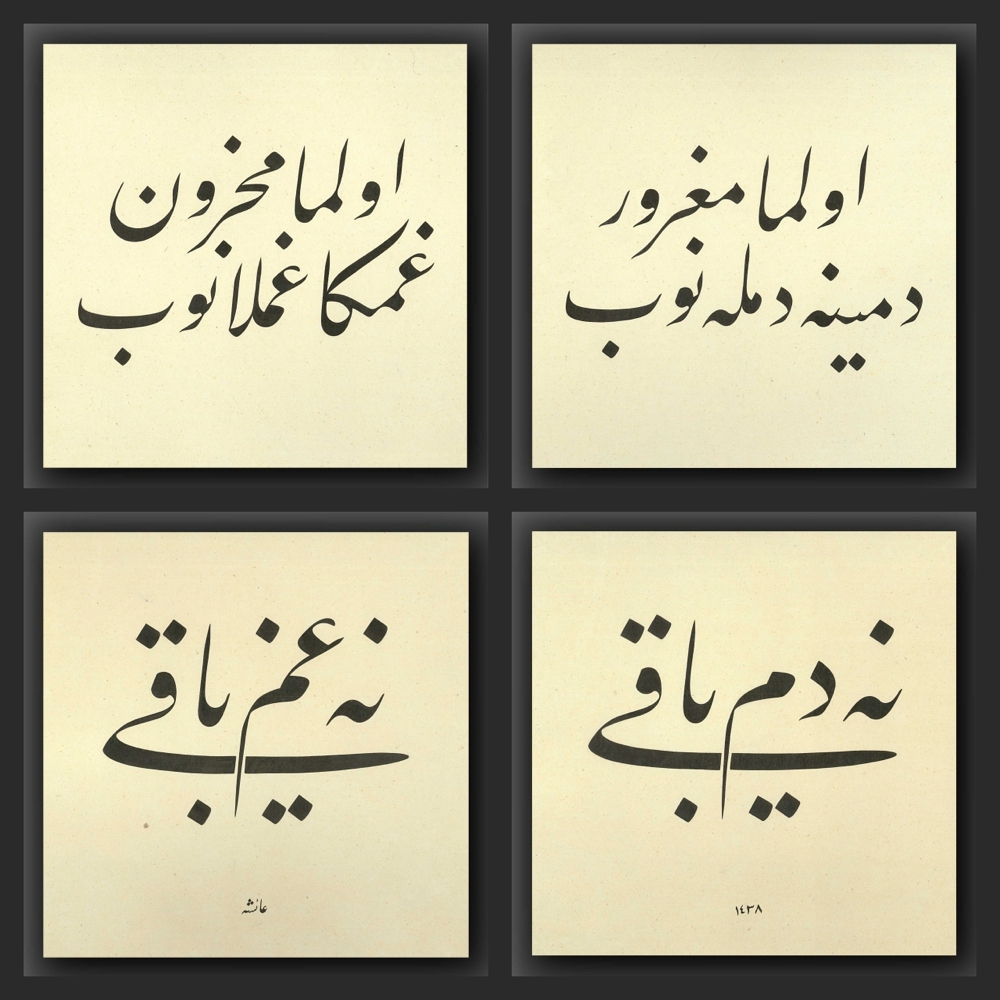 اولما مغرور
دمينه دمله نوب
اولما محزون
غمكا غملانوب
نه دم باقي
١٤٣٨
نه غم باقي
عائشه